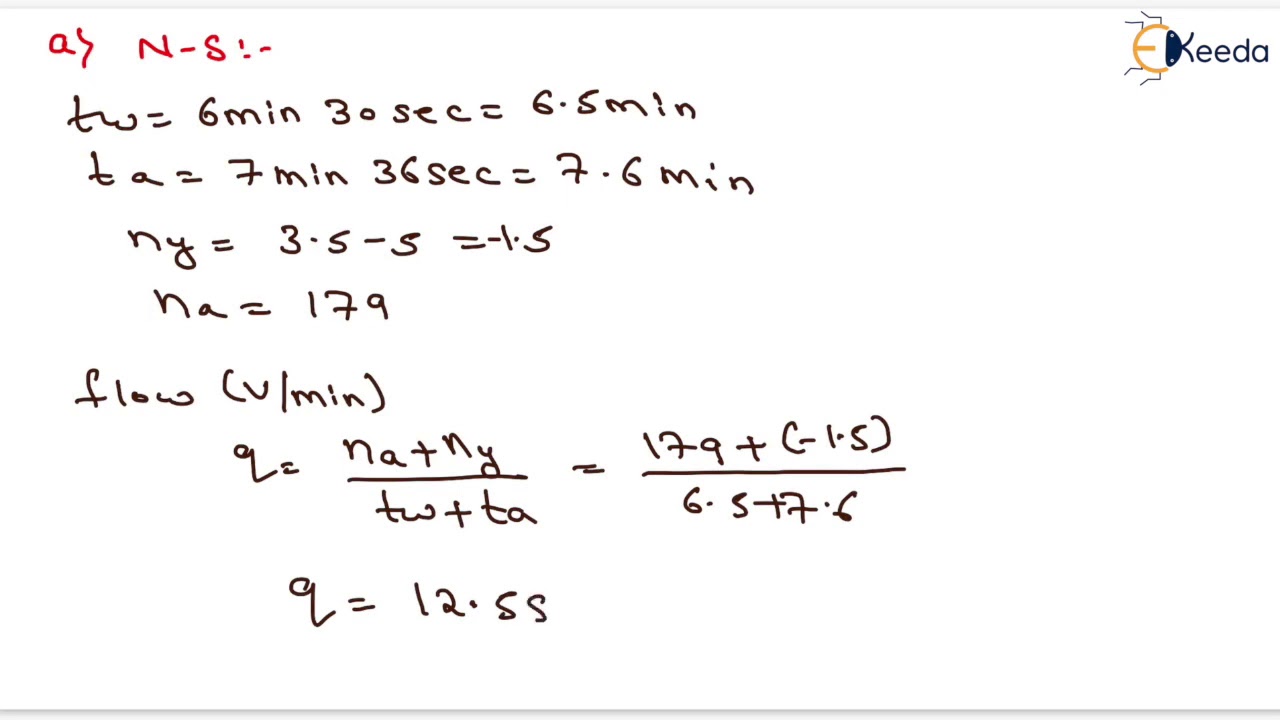 a) N-S:-
EKeeda
tw = 6min 30 sec = 6.5min
ta = 7min 36sec = 7.6 min
ny = 3.5-5 =-1.5
na = 179
flow (V/min)
q = na+ny / tw+ta = 179+(-1.5) / 6.5+7.6
q = 12.55